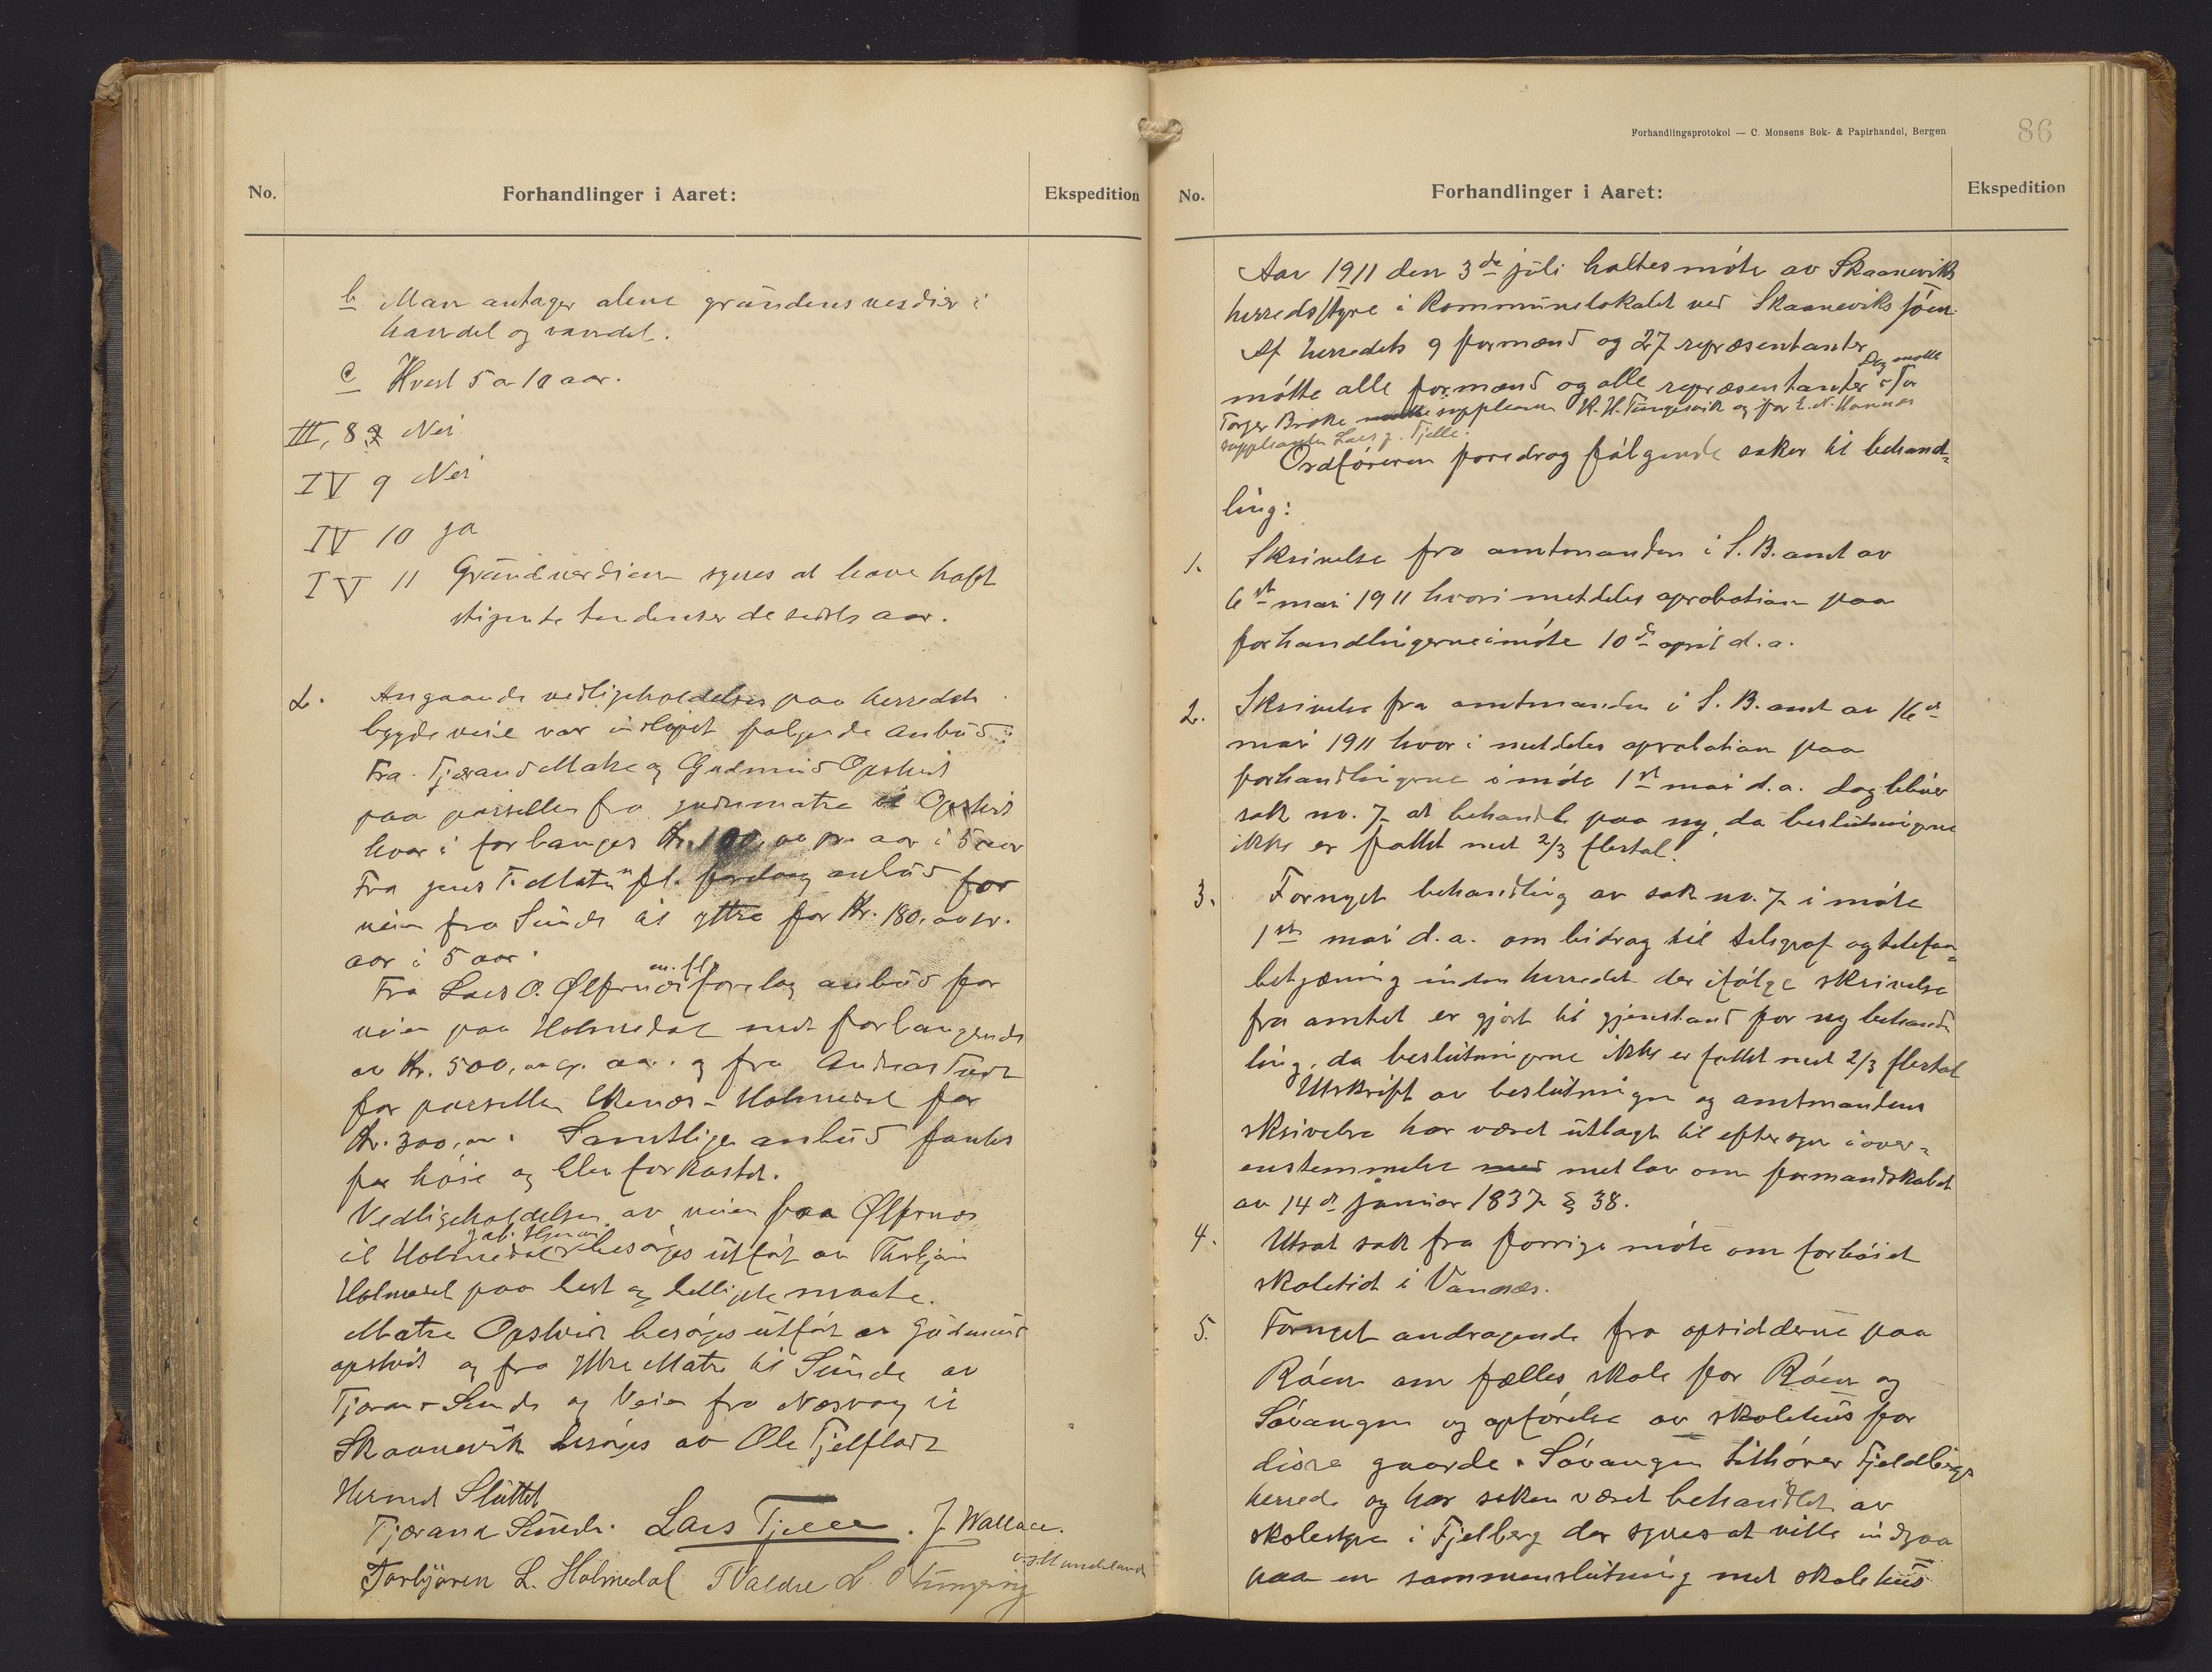 No.
Forhandlinger i Aaret:
Ekspedition
b Man antager alene grundens verdier i
handel og vandel.
c Hvert 5 a 10 aar.
III, 8 Nei
IV 9 Nei
IV 10 ja
IV 11 Grundverdien synes at have haft
stigende tendenser de sidste aar.
2. Angaaende vedligeholdelsen paa herredets
bygdeveie var indløpet følgende anbud:
Fra Tjærand Matre og Gudmund Opsvik
paa parsellen fra Matre til Opsvik
hvor i forlanges Kr. 100,00 pr. aar i 5 aar
Fra Jens T. Matre fl. forelaag anbud for
veien fra Sunde til ytre for Kr. 180,00 pr.
aar i 5 aar.
Fra Lars O. Ølfernes m. fl. forelaa anbud for
veien paa Holmedal med forlangende
av Kr. 500,00 pr. aar. og fra Andreas
for parsellen Ekenæs - Holmedal for
Kr. 300,00. Samtlige anbud fandtes
for høie og blev forkastet.
Vedligeholdelsen av veien fra Ølfernes
til Holmedal besørges utført av Thorbjørn
Holmedal paa best og billigste maate.
Matre Opsvik besørges utført av Gudmund
Opsvik og fra Ytre Matre til Sunde av
Tjæran Sunde og Veien fra Næsvaag til
Skaanevik besørges av Ole Fjelflaadt
Hermed Sluttet
Tjærand Sunde. Lars Tjelle. J. Wallace.
Torbjøren L. Holmedal T Valdre L. O Tungesvig
Forhandlingsprotokol — C. Monsens Bok- & Papirhandel, Bergen
86
No.
Forhandlinger i Aaret:
Ekspedition
Aar 1911 den 3de juli holtes møte av Skaaneviks
herredsstyre i Kommunelokalet ved Skaaneviks sjøen.
Af herredets 9 formænd og 27 repræsentanter
møtte alle formænd og alle repræsentanter Dog møtte for
Torger Broke suppleann K. H. Tungesvik og for E. N. Hannes
suppleanten Lars J. Tjelle.
Ordføreren foredrog følgende saker til behand-
ling:
1. Skrivelse fra amtmanden i S. B. amt av
6te mai 1911 hvori meddeles aprobation paa
forhandlingerne i møte 10de april d. a.
2. Skrivelse fra amtmanden i S. B. amt av 16de
mai 1911 hvori meddeles aprobation paa
forhandlingerne i møde 1ste mai d. a. dog bliver
sak no. 7 at behandle paa ny, da beslutningerne
ikke er fattet med 2/3 flertal.
3. Fornyet behandling av sak no. 7 i møte
1ste mai d. a. om bidrag til telegraf og telefon-
betjæning inden herredet der ifølge skrivelse
fra amtet er gjort til gjenstand for ny behand
ling, da beslutningerne ikke er fattet med 2/3 flertal
Utskrift av beslutningen og amtmandens
skrivelse har været utlagt til eftersyn i over-
enstemmelse med lov om formandskabet
av 14de januar 1837 § 38.
4. Utsat sak fra forrige møte om forhøiet
skoletid i Vannæs.
5. Fornyet andragende fra opsidderne paa
Røen om fælles skole for Røen og
Søvangen og opførelse av skolehus for
disse gaarde. Søvangen tilhører Fjeldbergs
herred og har saken været behandlet av
skolestyre i Fjelberg der synes at ville indgaa
paa en sammenslutning med skolehus